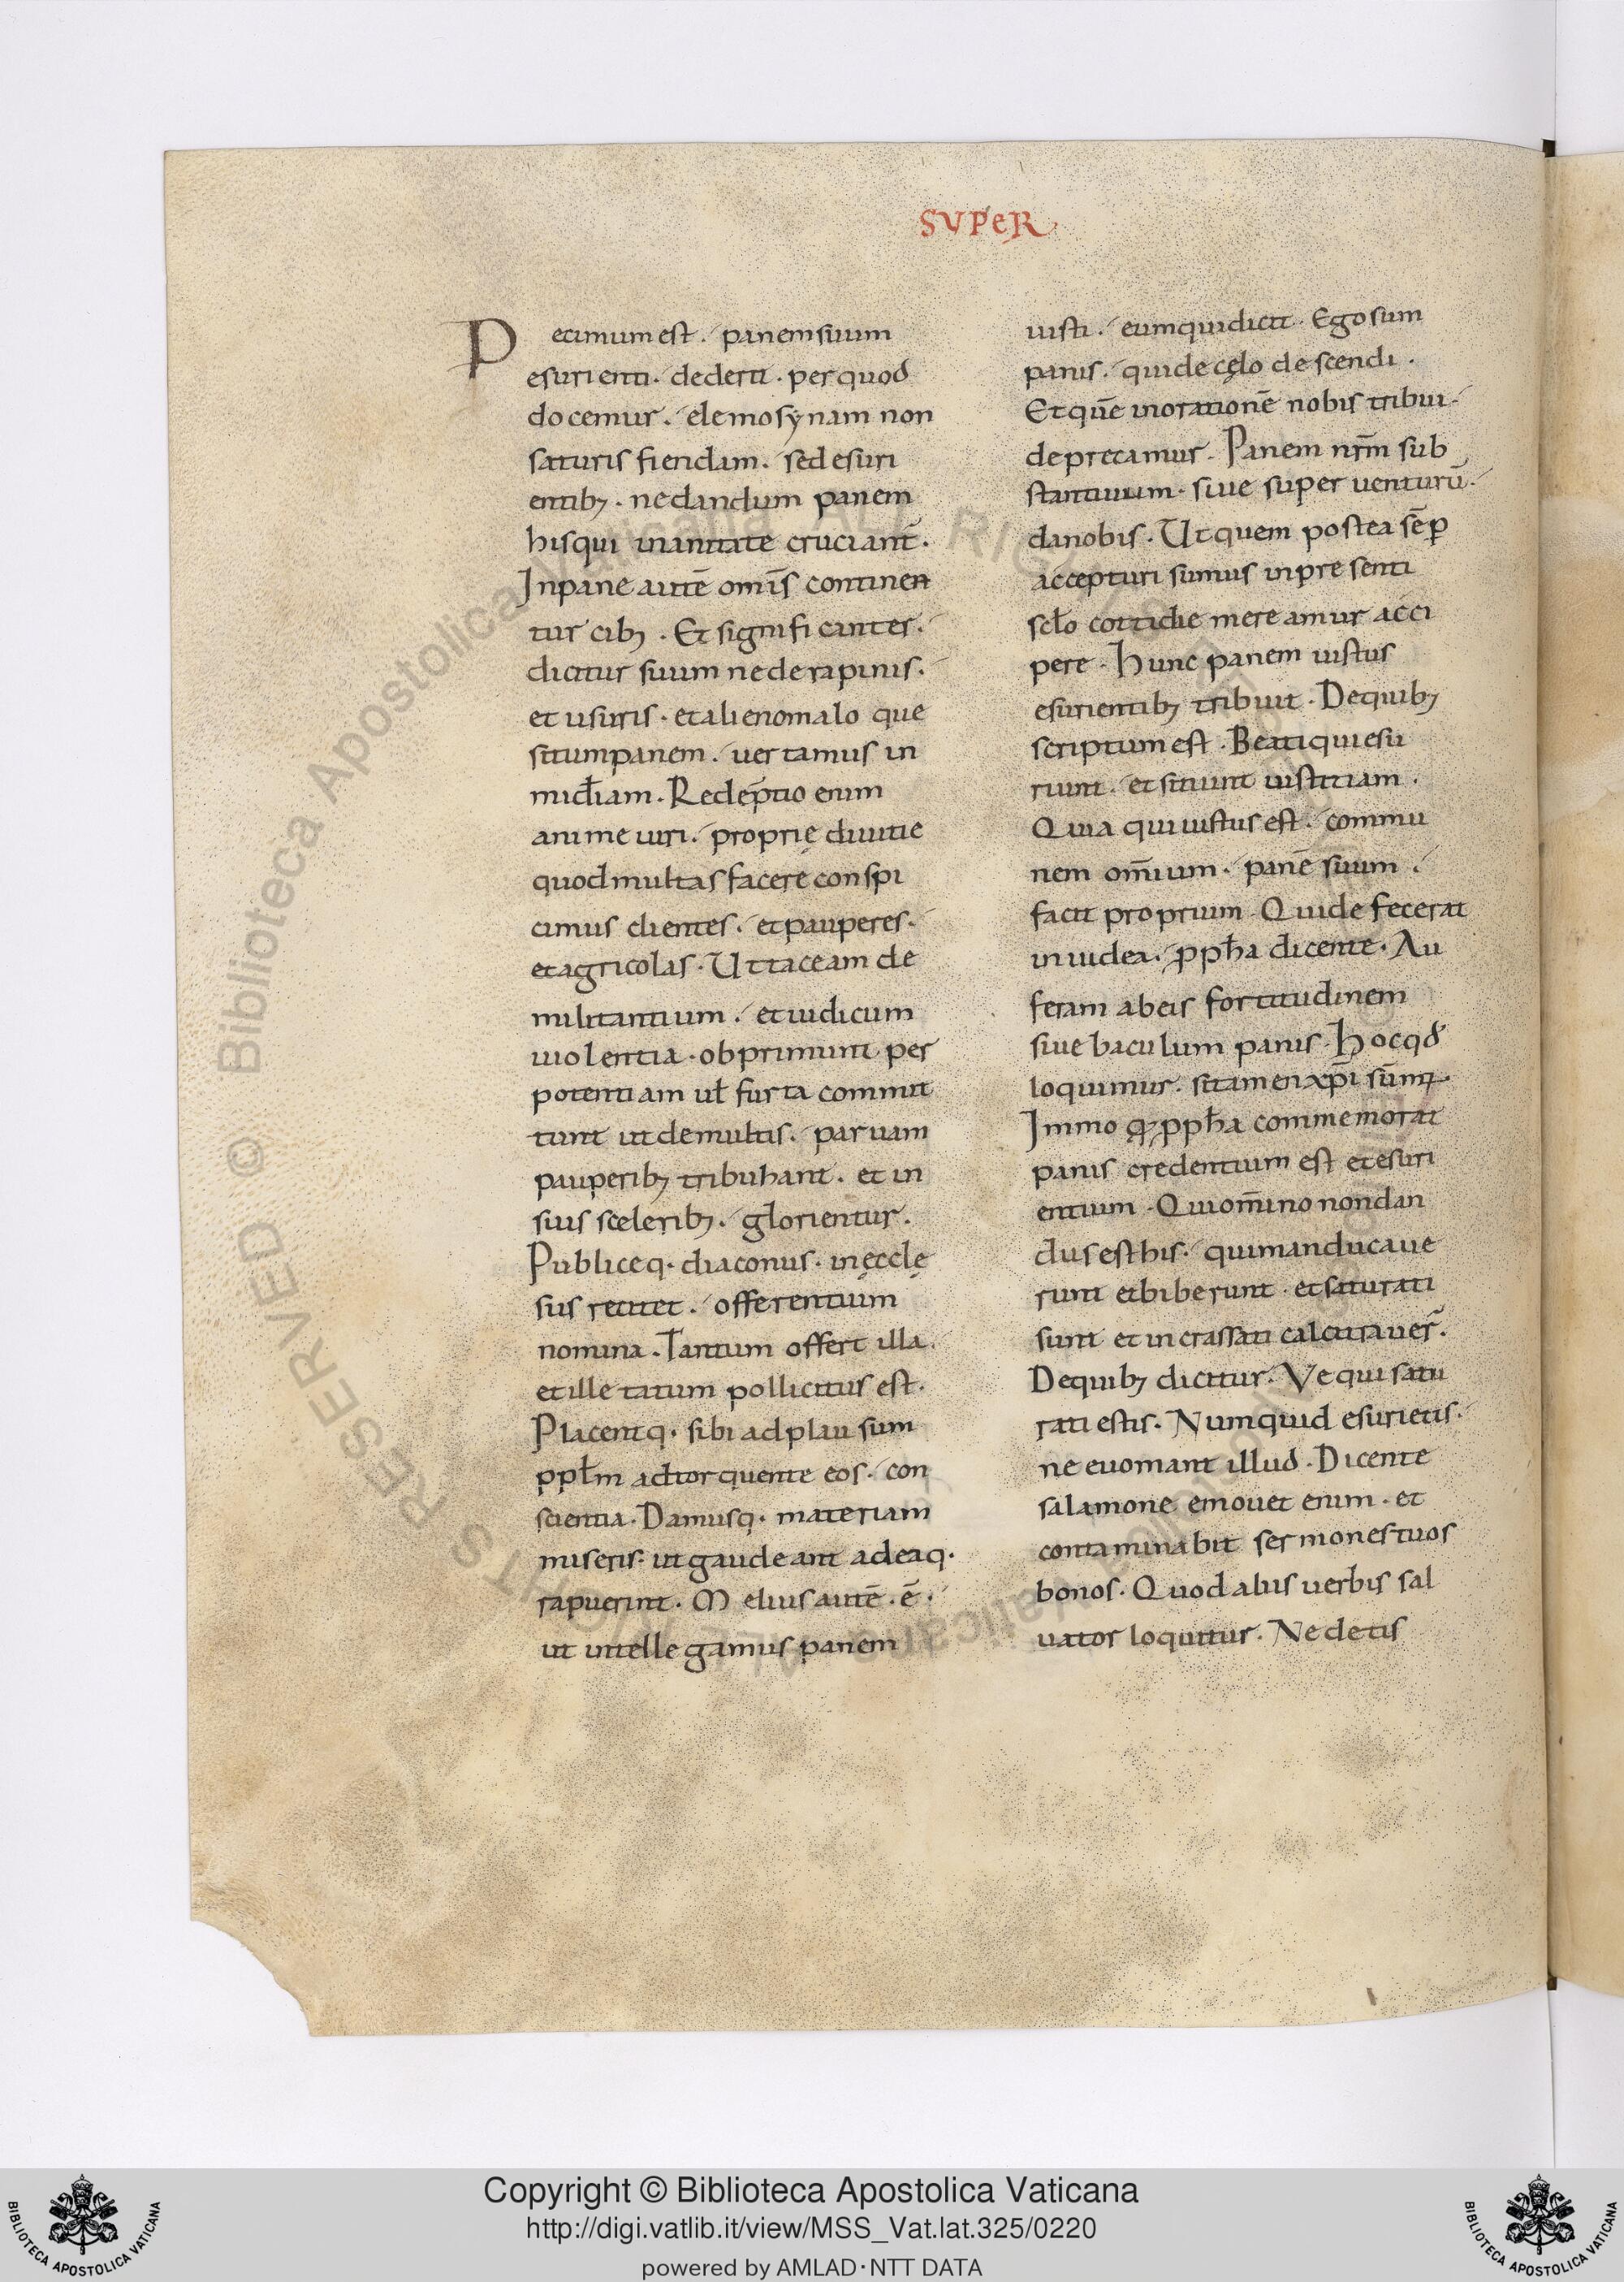 SVPER
Pecimum est. panem suum
esurienti. dederit. per quod
docemur. elemosynam non
saturis fiendam. sed esuri
entib; . ne dandum panem
his qui inanitate cruciant̄.
In pane autē omīs continen
tur cib; . Et significanter.
dicitur suum ne de rapinis.
et usuris. et alieno malo que
situm panem. vertamus in
mi̅diam. Redēptio enim
anime viri. proprię divitie
quod multas facere conspi
cimus clientes. et pauperes.
et agricolas. Ut taceam de
militantium. et iudicum
violentia. obprimunt per
potentiam ul̄ furta commit
tunt ut de multis. parvam
pauperib; tribuhant. et in
suis sceleribꝫ. glorientur.
Publiceq. diaconus. in ęcclę
sus recitet. offerentium
nomina. Tantum offert illa.
et ille tatum pollicitus est.
Placentq. sibi ad plausum
ppl̄m ad torquente eos. con
scientia. Damusq. materiam
miseris. ut gaudeant ad eaq.
rapuerint. Melius autē. ē.
ut intellegamus panem
iusti. eum qui dicit. Ego sum
panis. qui de cęlo descendi.
Et quē in orationē nobis tribui.
deprecamur. Panem nr̄m sub
stantivum. sive super venturū.
da nobis. Ut quem postea sēp̄
accepturi sumus in pre senti
scl̄o cottidie mereamur acci
pere. Hunc panem iustus
esurientib; tribuit. De quib;
scriptum est. Beati qui esu
riunt. et sitiunt iustitiam.
Quia qui iustus est. commu
nem om̄ium. panē suum.
facit proprium. Qui defecerat
in iudea. ꝓpħa dicente. Au
feram ab eis fortitudinem
sive baculum panis. Hoc qđ
loquimur. si tamen xp̄i sūmꝰ.
Immo ꝙ ꝓpħa commemorat
panis credentium est et esuri
entium. Qui om̄ino non dan
dus est his. qui manducave
runt et biberunt. et saturati
sunt et incrassati calcitraver̄.
De quib; dicitur. Ve qui satu
rati estis. Numquid esurietis.
ne evomant illud. Dicente
salamone emovet enim. et
contaminabit sermones tuos
bonos. Quod aliis verbis sal
vator loquitur. Ne detis
Copyright © Biblioteca Apostolica Vaticana
http://digi.vatlib.it/view/MSS_Vat.lat.325/0220
powered by AMLAD·NTT DATA
BIBLIOTECA APOSTOLICA VATICANA
BIBLIOTECA APOSTOLICA VATICANA